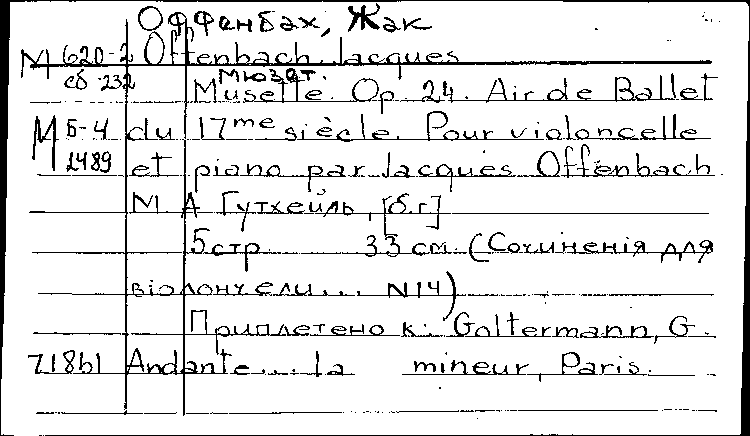 Оффенбах, Жак
М 620-2 Offenbach Jacques
сб 232 Мюзет.
Musette. Op 24. Air de Ballet
М Б-4 du 17me siècle. Pour violoncelle
1489 et piano par Jacques Offenbach
М. А Гутхейль, [б.г]
5 стр 33 см. (Сочиненiя для
вiолончели... N14)
Приплетено к: Goltermann, G.
718b1 Andante... la mineur, Paris.